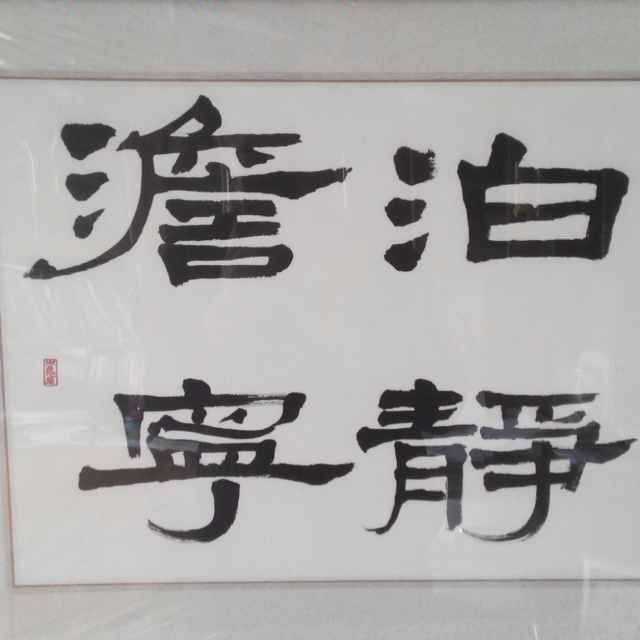 澹泊
寧靜